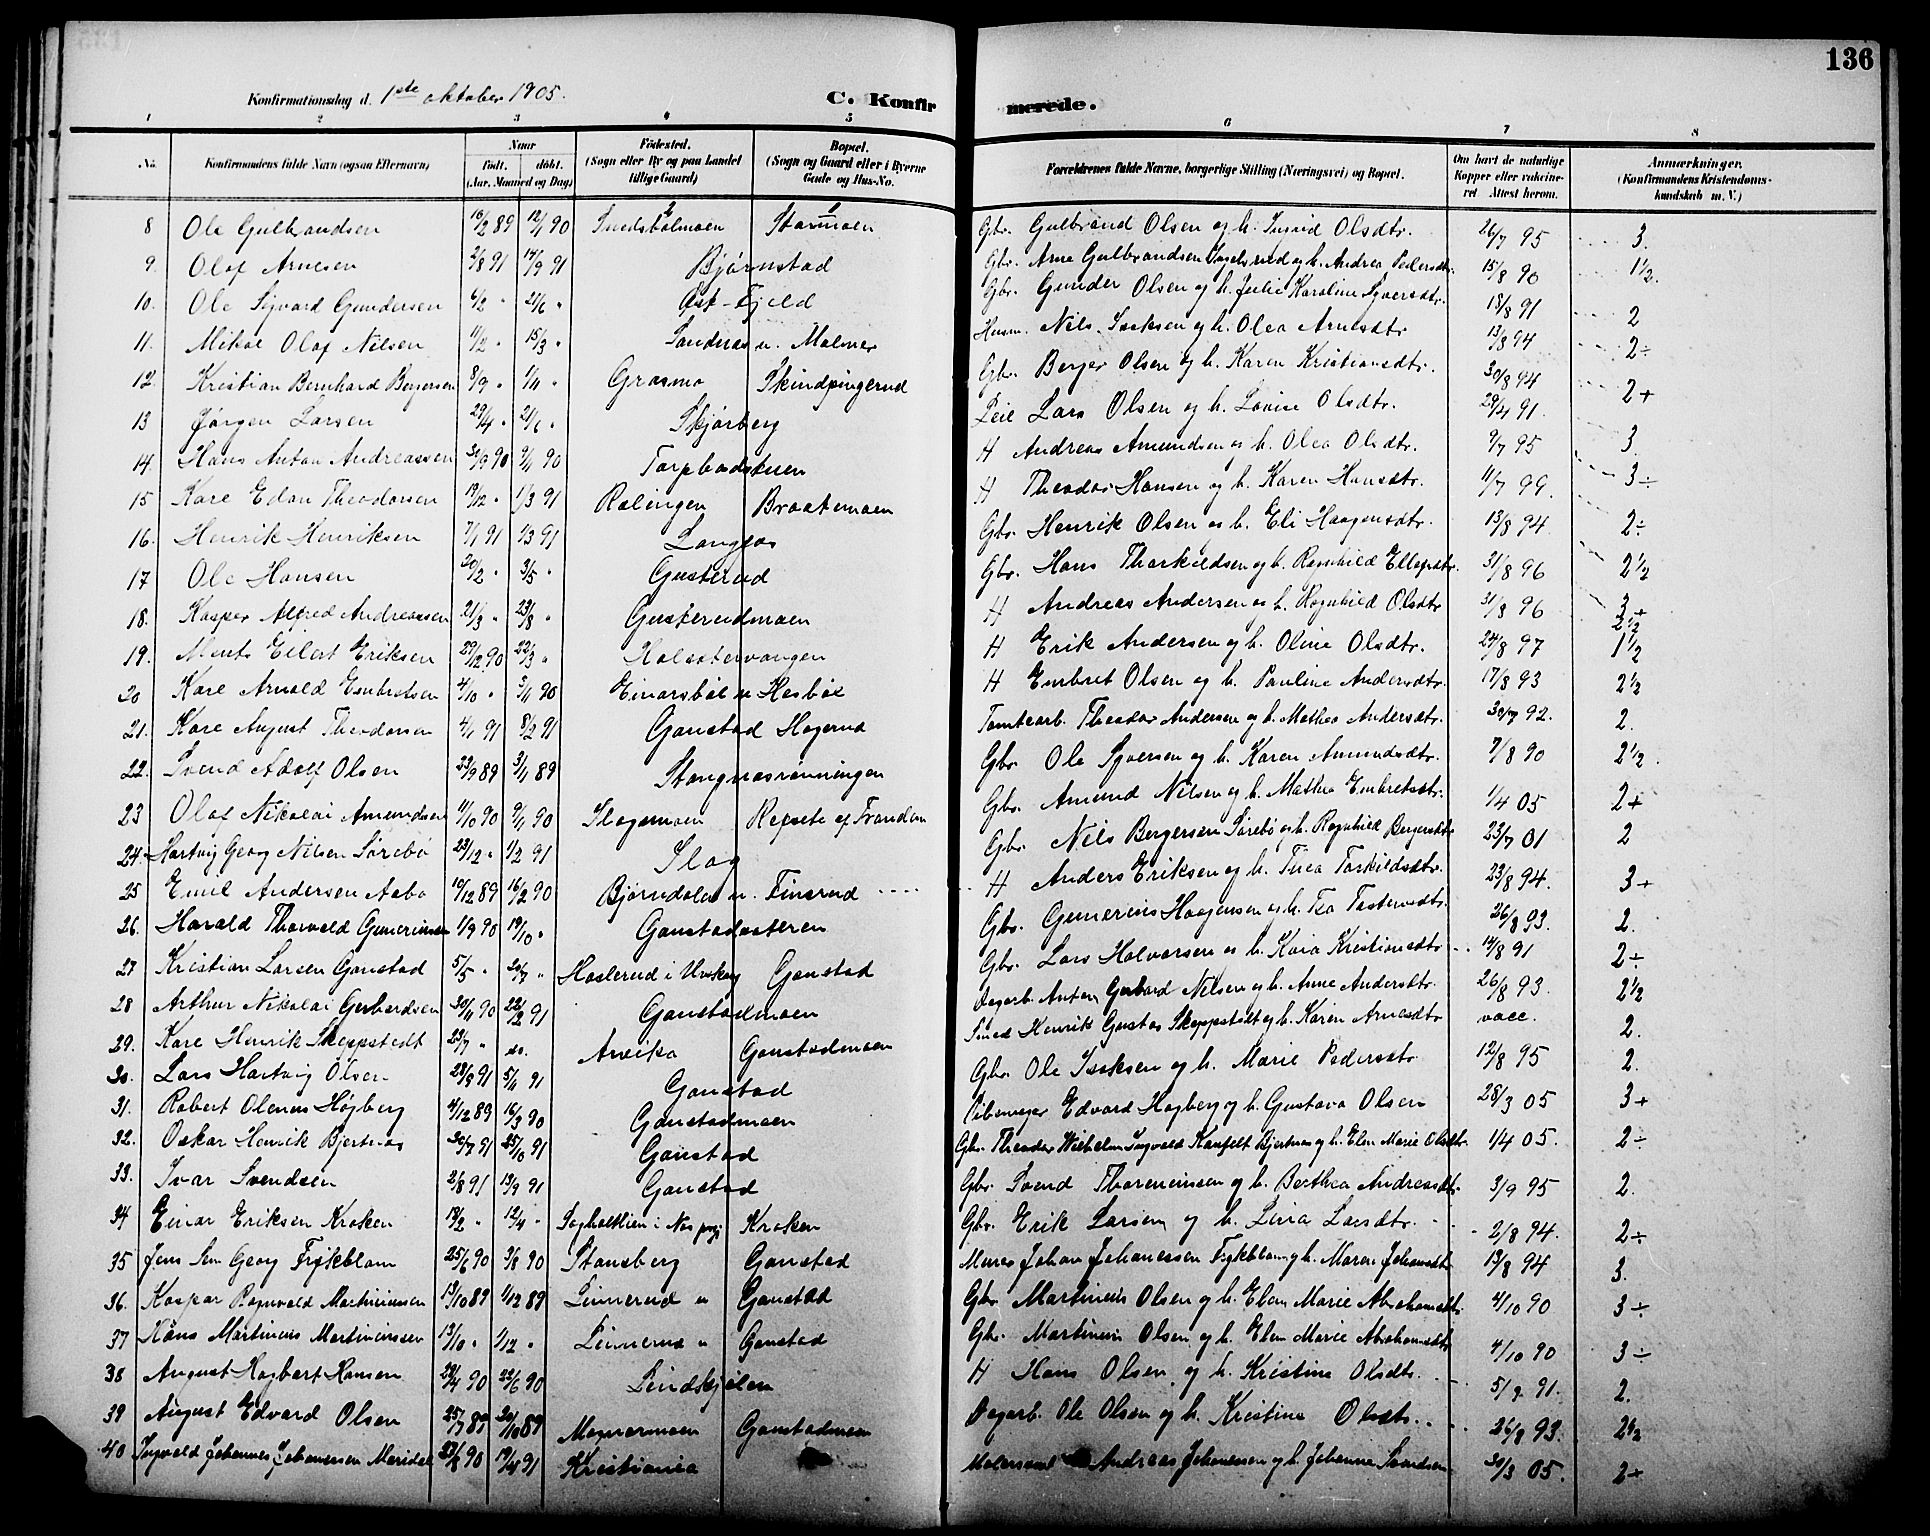 136
Konfirmationsdag d. 1ste oktober 1905.
C. Konfirmerede.
1 2 3 4 5 6 7 8
No. Konfirmandens fulde Navn (ogsaa Efternavn) Naar født. døbt. (Aar, Maaned og Dag) Fødested. (Sogn eller By og paa Landet tillige Gaard) Bopæl. (Sogn og Gaard eller i Byerne Gade og Hus-No. Forældrenes fulde Navne, borgerlige Stilling (Næringsvei) og Bopæl. Om havt de naturlige Kopper eller vaccineret. Attest herom. Anmærkninger. (Konfirmandens Kristendomskundskab m. V.)
8 Ole Gulbrandsen 16/2 89 12/1 90 Starmoen Gbr. Gulbrand Olsen og h. Ingrid Olsdtr. 26/7 95 3.
9. Olaf Arnesen 2/8 91 14/9 91 Bjørnstad Gbr. Arne Gulbrandsen og h. Andrea Pedersdtr. 15/8 90 1 1/2.
10. Ole Sigvard Gundersen 6/2 " 21/6 " Øst-Fjeld Gbr. Gunder Olsen og h. Julie Karoline Syversdtr. 18/8 91 2
11. Mikal Olaf Nilsen 11/2 " 15/3 " Sanderen n. Malmer Husm. Nils Isaksen og h. Olea Arnesdtr 13/8 94 2÷
12. Kristian Bernhard Bergersen 8/9 " 1/11 " Grasmo Skindpingerud Gbr. Berger Olsen og h. Karen Kristiansdtr. 30/8 94 2+
13 Jørgen Larsen 29/4 " 21/6 " Skjørberg Leil Lars Olsen og h. Lovise Olsdtr. 29/4 91. 3
14. Hans Anton Andreassen 30/9 90 9/11 90 Torpbadstuen H Andreas Amundsen og h. Olea Olsdtr. 9/7 95 3÷
15 Kare Edon Theodorsen 19/12 " 1/3 91 Rolingen Braatemoen H Theodor Hansen og h. Karen Hansdtr. 11/7 99.
16. Henrik Henriksen 7/1 91 1/3 91 Langaas Gbr. Henrik Olsen og h. Eli Haagensdtr. 13/8 94 2÷
17 Ole Hansen 20/2 " 3/5 " Gusterud Gbr. Hans Thorkildsen og h. Ragnhild Ellefsdtr. 31/8 96 2 1/2
18. Kasper Alfred Andreassen 21/3 " 23/8 " Gusterudmoen H Andreas Andersen og h. Ragnhild Olsdtr 31/8 96 3+
19. Ments Eilert Eriksen 29/12 90 22/3 " Kolsætervangen H Erik Andersen og h. Oline Olsdtr. 24/8 97 1 1/2
20 Kare Arnold Embretsen 4/10 " 3/11 90 Einarsbøl n Hesbøl H Embret Olsen og h. Pauline Andersdtr. 17/8 93 2 1/2
21. Kare August Theodorsen 4/1 91 8/2 91 Ganstad Hogerud Tomtearb. Theodor Andersen og h. Mathea Andersdtr. 30/7 92. 2.
22. Svend Adolf Olsen 23/9 89 3/11 89 Stangnesrønningen Gbr. Ole Syversen og h. Karen Amundsdtr. 7/8 90 2 1/2.
23 Olaf Nikolai Amundsen 11/10 90 9/11 90 Slagemoen Repsete af Trandem Gbr. Amund Nilsen og h. Mathea Embretsdtr. 1/4 05 2+
24. Hartvig Georg Nilsen Sørebø 23/12 " 1/2 91 Slag Gbr. Nils Bergersen Sørebø og h. Ragnhild Bergersdtr 23/7 01 2
25 Emil Andersen Aabo 10/12 89 16/2 90 Bjørndalen n. Finsrud H Anders Eriksen og h. Thea Torkildsdtr. 23/8 94. 3+
26. Harald Thorvald Gunerinsen 1/9 90 19/10 " Ganstadæteren Gbr. Gunerius Haagensen og h. 26/8 93. 2.
27 Kristian Larsen Ganstad 5/5 " 20/7 " Haslerud i Urskog Ganstad Gbr. Lars Halvorsen og h. Karia Kristiansdtr 14/8 91 2÷
28 Arthur Nikolai Gerhardsen 30/11 90 22/2 91 Ganstadmoen Dagarb. Anton Gerhard Nilsen og h. Anne Andersdtr. 26/8 93. 2 1/2
29. Kare Henrik Skeppstedt 23/7 " do. Arvika Ganstadmoen Smed Henrik Gustav Skeppstedt og h. Karen Arnesdtr vacc. 2.
30. Lars Hartvig Olsen 28/9 91 5/11 91 Ganstad Gbr. Ole Isaksen og h. Marie Pedersdtr 12/8 95 2.
31. Robert Olenus Høgberg 4/12 89 16/3 90 Ganstadmoen Edvard Høgberg og h. Gustava Olsen 28/3 05 3+
32. Oskar Henrik Bjertnæs 30/7 91 25/10 91 Ganstad Gbr. Theodor Wilhelm Ingvald Bjertnæs og h. Elen Marie Olsdtr. 1/4 05. 2÷
33. Ivar Svendsen 2/8 91 13/9 91 Ganstad Gbr. Svend Thoreniussen og h. Berthea Andreasdtr. 3/9 95 2.
34 Einar Eriksen Kroken 18/2 " 12/4 " Kroken Gbr. Erik Larsen og h. Lina Larsdtr. 2/8 94. 2÷
35 Jens Georg Frykblom 25/6 90 3/8 90 Stansberg Ganstad Murer Johan Johanessen Frykblom og h. Maren Johansdtr 13/8 94 3.
36. Kaspar Ragnvald Martiniussen 13/10 89 1/12 89 Linnerud n Ganstad Gbr. Martinius Olsen og h. Elen Marie Abrahamsdtr. 4/10 90 3÷
37 Hans Martinius Martiniussen 13/10 " 1/12 " Linnerud n Ganstad Gbr. Martinius Olsen og h. Elen Marie Abrahamsdtr 4/10 90 3÷
38 August Hagbart Hansen 29/4 90 22/6 90 Lindskjølen H Hans Olsen og h. Kristine Olsdtr. 5/9 91. 2.
39 August Edvard Olsen 25/7 89 20/10 89 Magnormoen Ganstadmoen Dagarb. Ole Olsen og h. Kristine Olsdtr. 26/8 93. 2 1/2
40 Ingvald Johannes Johannessen Meridel 23/2 90 19/4 91 Kristiania Andreas Johanessen og h. Johanne Svendsen 30/3 05. 2+